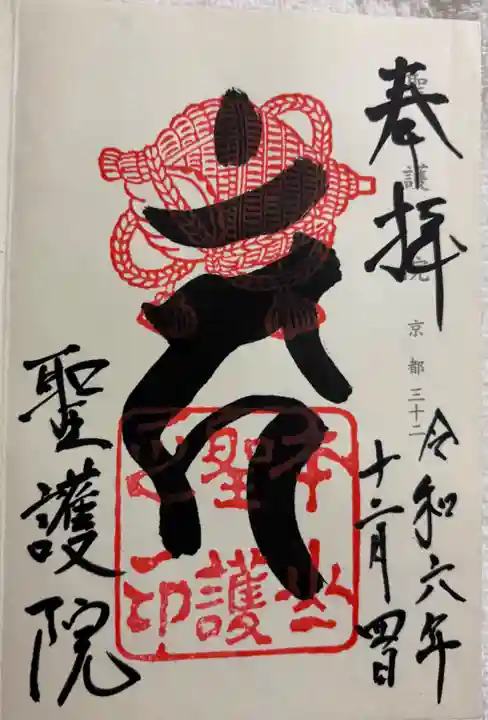 奉拝
聖護院
京都三十二
令和六年
十二月四日
聖護院
本山
聖護